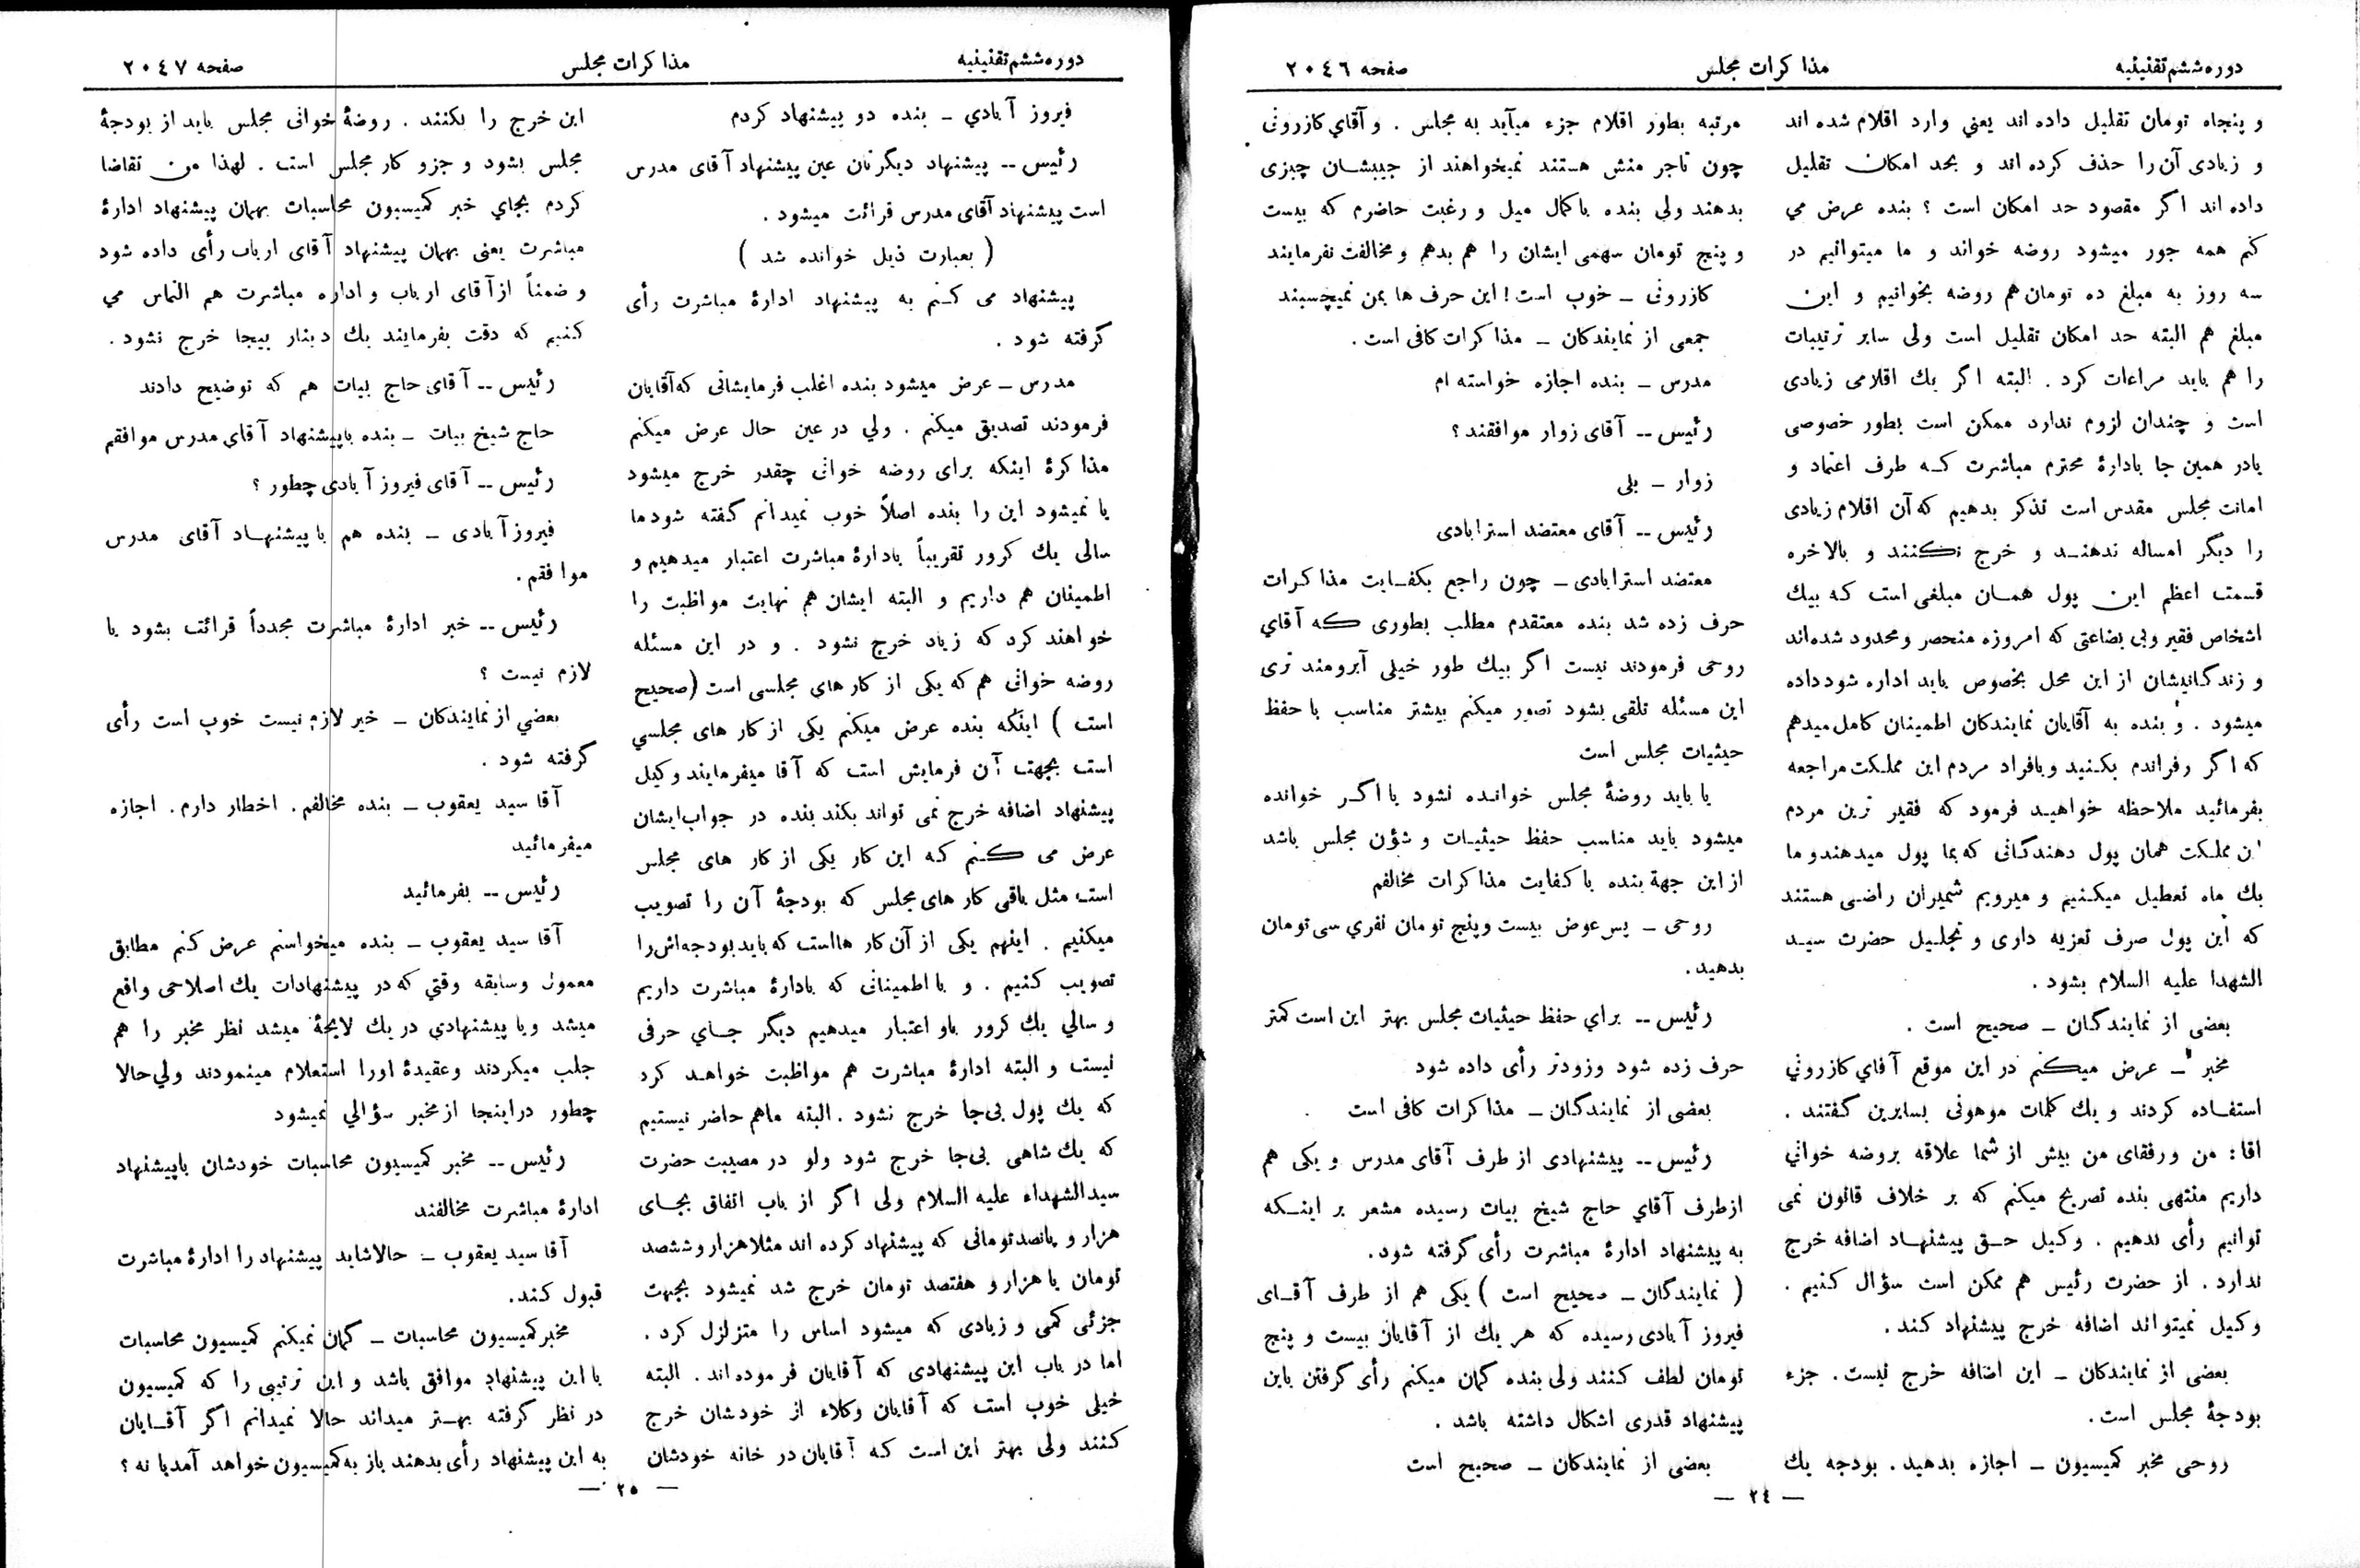 دوره ششم تقنینیه
مذاکرات مجلس
صفحه ۲۰۴۶
و پنجاه تومان تقلیل داده اند یعنی وارد اقلام شده اند
و زیادی آن را حذف کرده اند و بحد امکان تقلیل
داده اند اگر مقصود حد امکان است ؟ بنده عرض می
کنم همه جور میشود روضه خواند و ما میتوانیم در
سه روز به مبلغ ده تومان هم روضه بخوانیم و این
مبلغ هم البته حد امکان تقلیل است ولی سایر ترتیبات
را هم باید مراعات کرد . البته اگر یك اقلامی زیادی
است و چندان لزوم ندارد ممکن است بطور خصوصی
یادر همین جا بادارهٔ محترم مباشرت که طرف اعتماد و
امانت مجلس مقدس است تذکر بدهیم که آن اقلام زیادی
را دیگر امساله ندهند و خرج نکنند و بالاخره
قسمت اعظم این پول همان مبلغی است که بیك
اشخاص فقیر وبی بضاعتی که امروزه منحصر و محدود شده اند
و زندگانیشان از این محل بخصوص باید اداره شود داده
میشود . و بنده به آقایان نمایندگان اطمینان کامل میدهم
که اگر رفراندم بکنید و بافراد مردم این مملکت مراجعه
بفرمائید ملاحظه خواهید فرمود که فقیر ترین مردم
این مملکت همان پول دهندگانی که بما پول میدهند و ما
یك ماه تعطیل میکنیم و میرویم شمیران راضی هستند
که این پول صرف تعزیه داری و تجلیل حضرت سید
الشهدا علیه السلام بشود .
بعضی از نمایندگان ـ صحیح است .
مخبر ـ عرض میکنم در این موقع آقای کازرونی
استفاده کردند و یك کلمات موهونی بسایرین گفتند .
اقا : من ورفقای من بیش از شما علاقه بروضه خوانی
داریم منتهی بنده تصریح میکنم که بر خلاف قانون نمی
توانیم رأی بدهیم . وکیل حق پیشنهاد اضافه خرج
ندارد . از حضرت رئیس هم ممکن است سؤال کنیم .
وکیل نمیتواند اضافه خرج پیشنهاد کند .
بعضی از نمایندگان ـ این اضافه خرج نیست . جزء
بودجهٔ مجلس است .
روحی مخبر کمیسیون ـ اجازه بدهید . بودجه یك
مرتبه بطور اقلام جزء میآید به مجلس . و آقای کازرونی
چون تاجر منش هستند نمیخواهند از جیبشان چیزی
بدهند ولی بنده باکمال میل و رغبت حاضرم که بیست
و پنج تومان سهمی ایشان را هم بدهم و مخالفت نفرمایند
کازرونی ـ خوب است ! این حرف ها بمن نمیچسبند
جمعی از نمایندگان ـ مذاکرات کافی است .
مدرس ـ بنده اجازه خواسته ام
رئیس -- آقای زوار موافقند ؟
زوار ـ بلی
رئیس -- آقای معتضد استرابادی
معتضد استرابادی ـ چون راجع بکفایت مذاکرات
حرف زده شد بنده معتقدم مطلب بطوری که آقای
روحی فرمودند نیست اگر بیك طور خیلی آبرومند تری
این مسئله تلقی بشود تصور میکنم بیشتر مناسب با حفظ
حیثیات مجلس است
یا باید روضهٔ مجلس خوانده نشود یا اگر خوانده
میشود باید مناسب حفظ حیثیات و شؤن مجلس باشد
از این جهة بنده باکفایت مذاکرات مخالفم
روحی ـ پس عوض بیست وپنج تومان نفری سی تومان
بدهید .
رئیس -- برای حفظ حیثیات مجلس بهتر این است کمتر
حرف زده شود وزودتر رأی داده شود
بعضی از نمایندگان ـ مذاکرات کافی است
رئیس -- پیشنهادی از طرف آقای مدرس و یکی هم
از طرف آقای حاج شیخ بیات رسیده مشعر بر اینکه
به پیشنهاد ادارهٔ مباشرت رأی گرفته شود .
( نمایندگان ـ صحیح است ) یکی هم از طرف آقای
فیروز آبادی رسیده که هر یك از آقایان بیست و پنج
تومان لطف کنند ولی بنده گمان میکنم رأی گرفتن باین
پیشنهاد قدری اشکال داشته باشد .
بعضی از نمایندگان ـ صحیح است
— ۲۴ —
دوره ششم تقنینیه
مذاکرات مجلس
صفحه ۲۰۴۷
فیروز آبادی ـ بنده دو پیشنهاد کردم
رئیس -- پیشنهاد دیگرتان عین پیشنهاد آقای مدرس
است پیشنهاد آقای مدرس قرائت میشود .
( بعبارت ذیل خوانده شد )
پیشنهاد می کنم به پیشنهاد ادارهٔ مباشرت رأی
گرفته شود .
مدرس ـ عرض میشود بنده اغلب فرمایشاتی که آقایان
فرمودند تصدیق میکنم . ولی در عین حال عرض میکنم
مذاکرهٔ اینکه برای روضه خوانی چقدر خرج میشود
یا نمیشود این را بنده اصلاً خوب نمیدانم گفته شود ما
سالی یك کرور تقریباً بادارهٔ مباشرت اعتبار میدهیم و
اطمینان هم داریم و البته ایشان هم نهایت مواظبت را
خواهند کرد که زیاد خرج نشود . و در این مسئله
روضه خوانی هم که یکی از کار های مجلسی است (صحیح
است ) اینکه بنده عرض میکنم یکی از کار های مجلسی
است بجهت آن فرمایش است که آقا میفرمایند وکیل
پیشنهاد اضافه خرج نمی تواند بکند بنده در جواب ایشان
عرض می کنم که این کار یکی از کار های مجلس
است مثل باقی کار های مجلس که بودجهٔ آن را تصویب
میکنیم . اینهم یکی از آن کار هااست که باید بودجه اش را
تصویب کنیم . و با اطمینانی که بادارهٔ مباشرت داریم
و سالی یك کرور باو اعتبار میدهیم دیگر جای حرفی
نیست و البته ادارهٔ مباشرت هم مواظبت خواهد کرد
که یك پول بی جا خرج نشود . البته ماهم حاضر نیستیم
که یك شاهی بی جا خرج شود ولو در مصیبت حضرت
سیدالشهداء علیه السلام ولی اگر از باب اتفاق بجای
هزار و پانصد تومانی که پیشنهاد کرده اند مثلا هزار و ششصد
تومان یا هزار و هفتصد تومان خرج شد نمیشود بجهت
جزئی کمی و زیادی که میشود اساس را متزلزل کرد .
اما در باب این پیشنهادی که آقایان فرموده اند . البته
خیلی خوب است که آقایان وکلاء از خودشان خرج
کنند ولی بهتر این است که آقایان در خانه خودشان
این خرج را بکنند . روضهٔ خوانی مجلس باید از بودجهٔ
مجلس بشود و جزو کار مجلس است . لهذا من تقاضا
کردم بجای خبر کمیسیون محاسبات بهمان پیشنهاد ادارهٔ
مباشرت یعنی بهمان پیشنهاد آقای ارباب رأی داده شود
و ضمناً از آقای ارباب و اداره مباشرت هم التماس می
کنیم که دقت بفرمایند یك دینار بیجا خرج نشود .
رئیس -- آقای حاج بیات هم که توضیح دادند
حاج شیخ بیات ـ بنده با پیشنهاد آقای مدرس موافقم
رئیس -- آقای فیروز آبادی چطور ؟
فیروز آبادی ـ بنده هم با پیشنهاد آقای مدرس
موافقم .
رئیس -- خبر ادارهٔ مباشرت مجدداً قرائت بشود یا
لازم نیست ؟
بعضی از نمایندگان ـ خیر لازم نیست خوب است رأی
گرفته شود .
آقا سید یعقوب ـ بنده مخالفم . اخطار دارم . اجازه
میفرمائید
رئیس -- بفرمائید
آقا سید یعقوب ـ بنده میخواستم عرض کنم مطابق
معمول وسابقه وقتی که در پیشنهادات یك اصلاحی واقع
میشد و یا پیشنهادی در یك لایحهٔ میشد نظر مخبر را هم
جلب میکردند و عقیدهٔ اورا استعلام مینمودند ولی حالا
چطور دراینجا از مخبر سؤالی نمیشود
رئیس -- مخبر کمیسیون محاسبات خودشان باپیشنهاد
ادارهٔ مباشرت مخالفند
آقا سید یعقوب ـ حالا شاید پیشنهاد را ادارهٔ مباشرت
قبول کند .
مخبر کمیسیون محاسبات ـ گمان نمیکنم کمیسیون محاسبات
با این پیشنهاد موافق باشد و این ترتیبی را که کمیسیون
در نظر گرفته بهتر میداند حالا نمیدانم اگر آقایان
به این پیشنهاد رأی بدهند باز به کمیسیون خواهد آمد یا نه ؟
— ۲۵ —